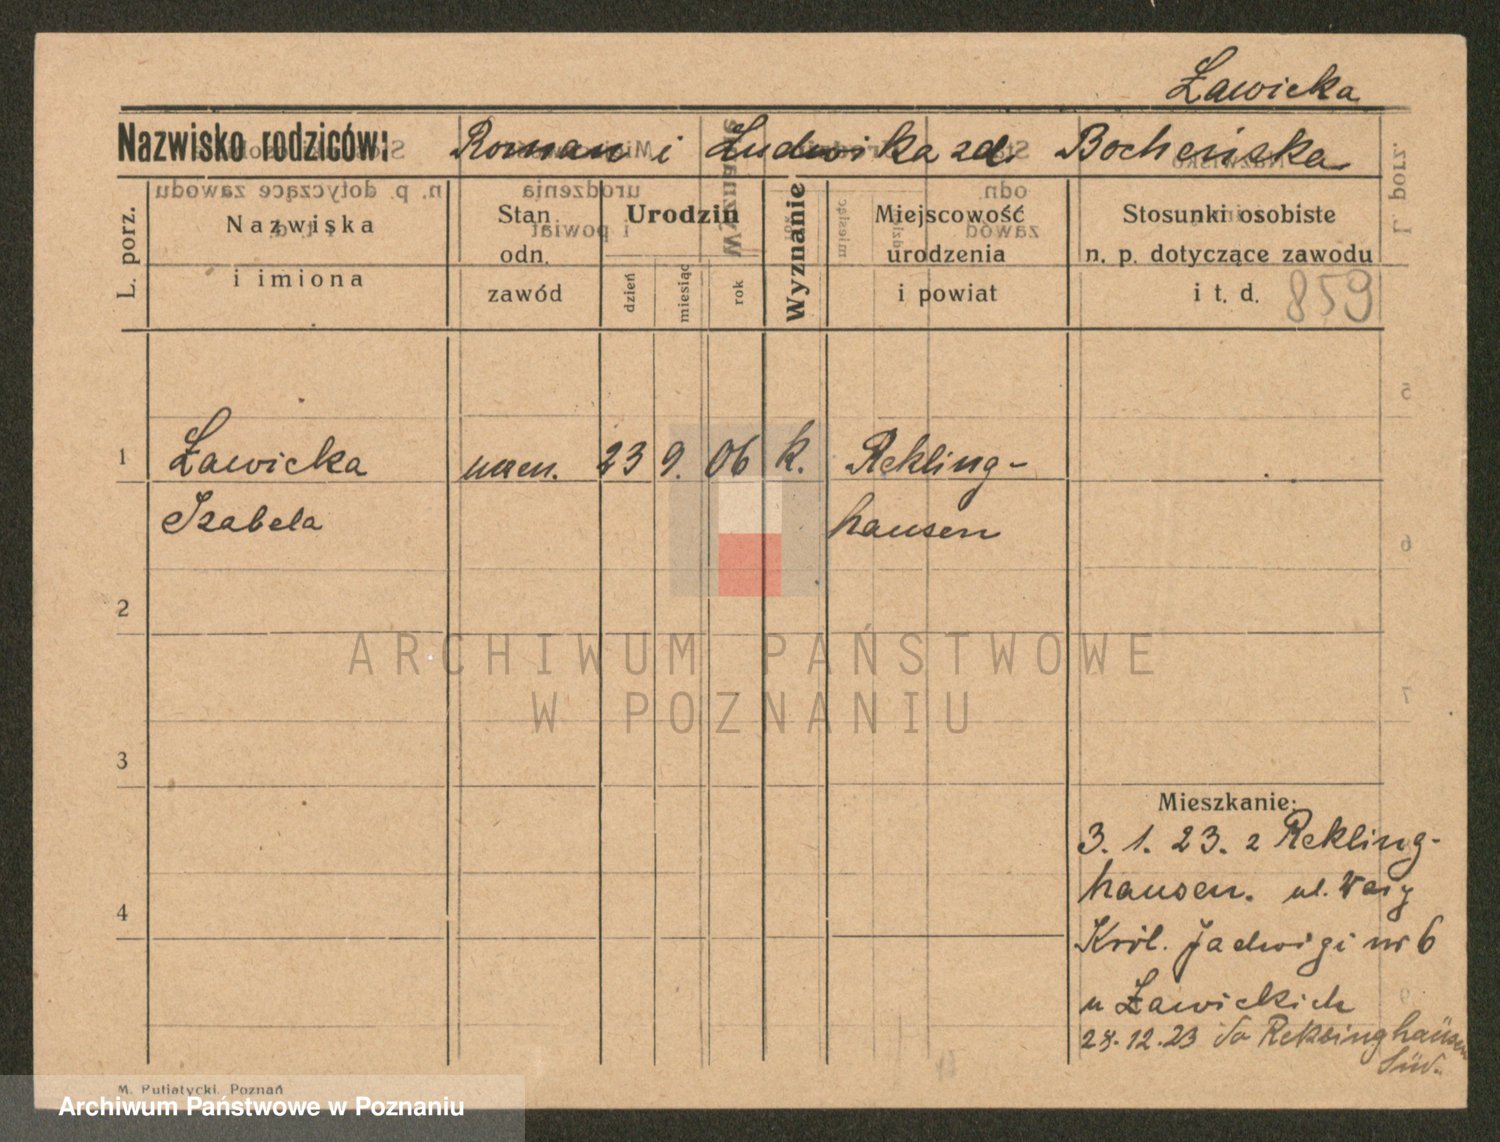 Ławicka
Nazwisko rodziców: Roman i Ludwika zd. Bocheńska
L. porz.
Nazwiska
i imiona
Stan
odn.
zawód
Urodzin
dzień
miesiąc
rok
Wyznanie
Miejscowość
urodzenia
i powiat
Stosunki osobiste
n. p. dotyczące zawodu
i t. d.
859
1 Ławicka 23 9. 06 k. Rekling-
Izabela hausen
2
3
4
Mieszkanie:
3. 1. 23. z Rekling-
hausen. ul. Wały
Król. Jadwigi nr 6
u Ławickich
28.12.23 do Reklinghausen
Süd.
M. Putiatycki, Poznań
ARCHIWUM PAŃSTWOWE
W POZNANIU
Archiwum Państwowe w Poznaniu